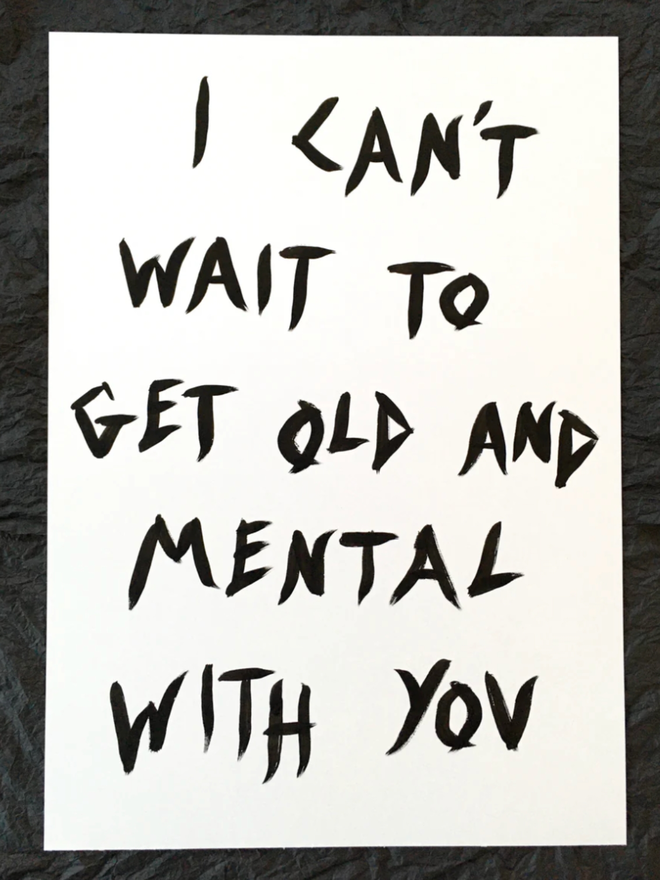 I CAN'T
WAIT TO
GET OLD AND
MENTAL
WITH YOU